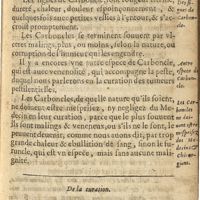 dureté, chaleur, douleur & poinçonnement, &
quelquesfois une petite vessie à l'entour, & s'ac-
croist promptement.
Les Carboncles se terminent souvent par ul-
ceres malings, plus, ou moins, selon la nature, ou
corruption de l'humeur qui les engendre.
Il y a encores une autre espece de Carboncle,
qui est avec venenosité, qui accompagne la peste,
duquel nous parlerons en la curation des tumeurs
pestilentielles.
Les Carboncles, de quelle nature qu'ils soient,
ne doivent estre mesprisez, ny negligez du Me-
decin en leur curation, parce comme souvent
ils sont malings & veneneux, ou s'ils ne le sont, le
peuvent devenir, comme nous avons dit, par trop
grande chaleur & ebullition de sang, sinon la
furoncle, qui est une espece, mais sans aucune ma-
lignité.
De la curation.
de Carbon-
cle.
Autre
espece de
Carbon-
cle.
Les Car-
boncles
ne doi-
vent estre
mesprisez